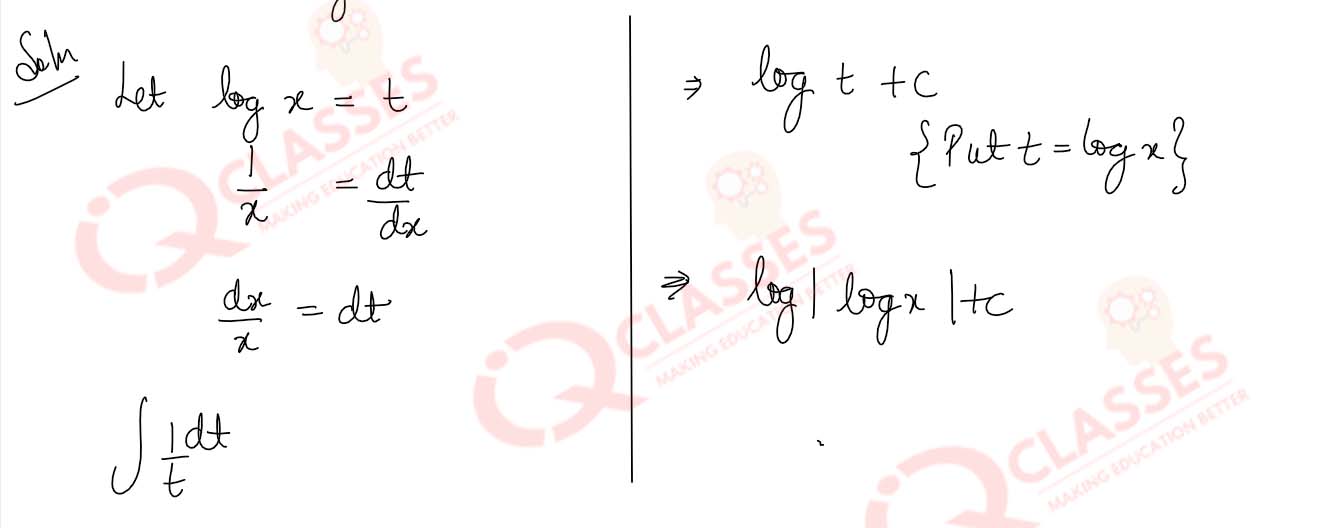 Soln
Let log x = t
1/x = dt/dx
dx/x = dt
∫ 1/t dt
⇒ log t + c
{Put t = log x}
⇒ log| log x |+c
iQ CLASSES
MAKING EDUCATION BETTER
iQ CLASSES
MAKING EDUCATION BETTER
iQ CLASSES
MAKING EDUCATION BETTER